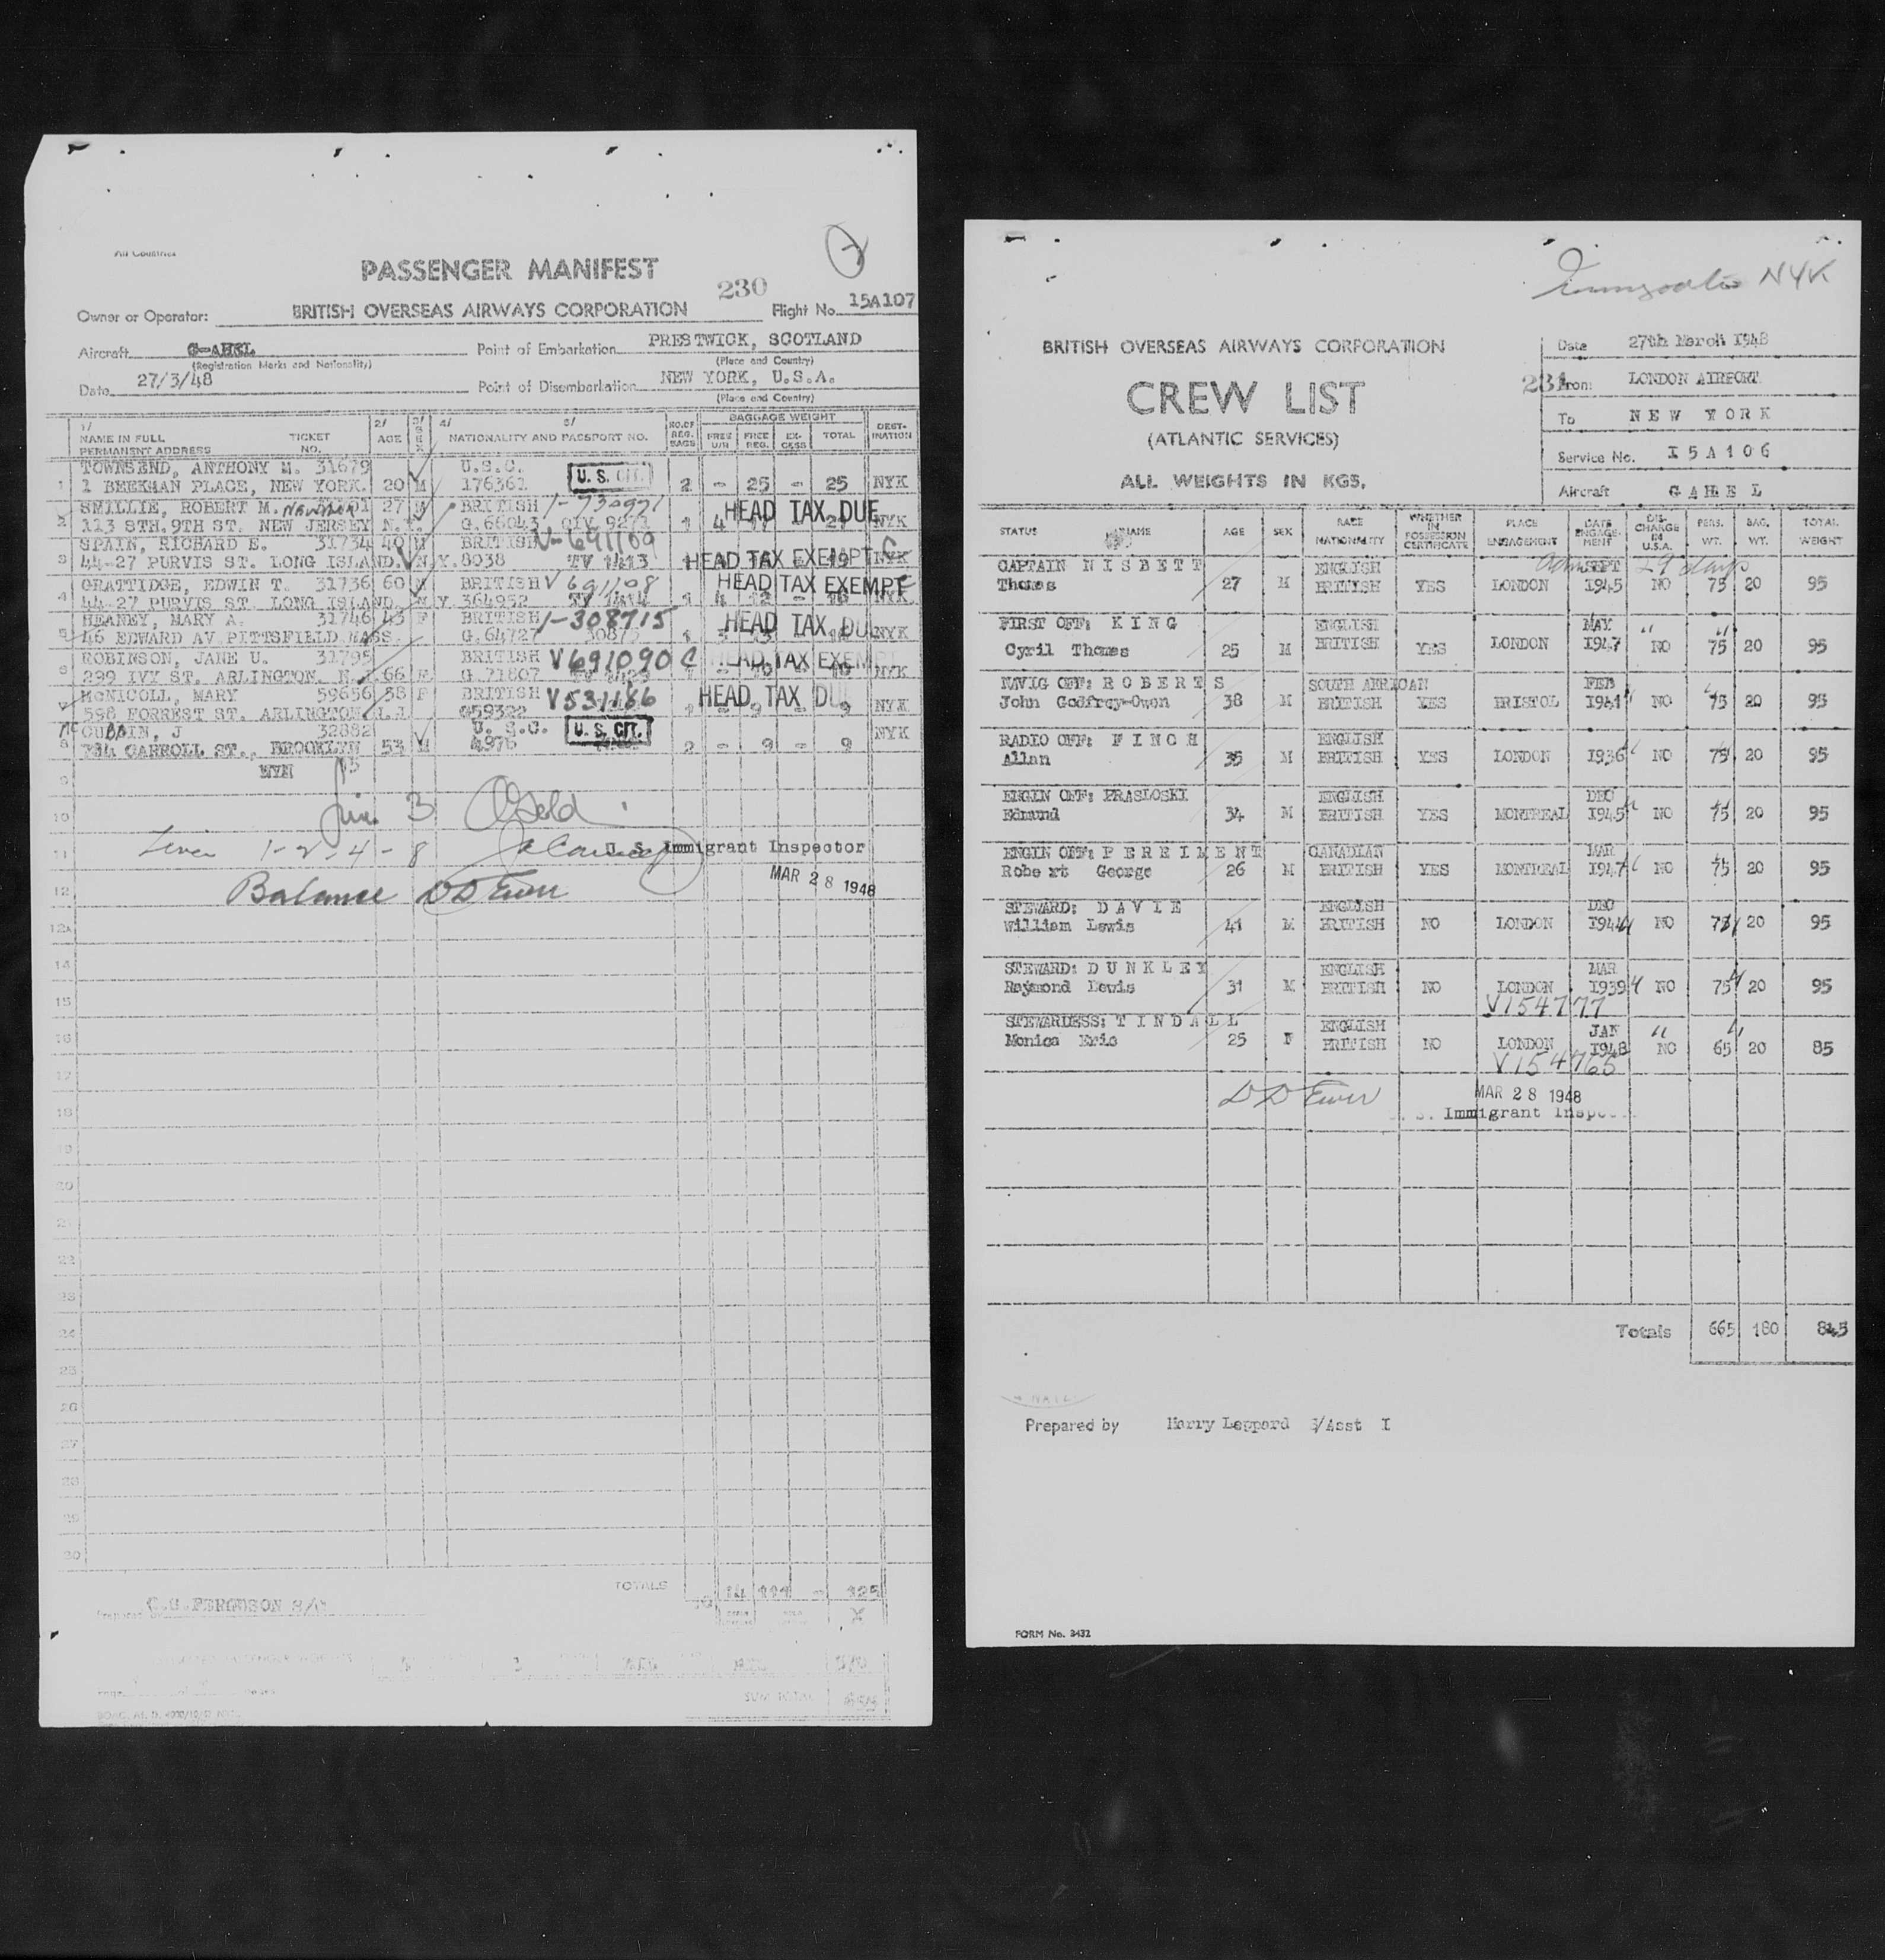 All Countries
PASSENGER MANIFEST
230
Owner or Operator: BRITISH OVERSEAS AIRWAYS CORPORATION Flight No. 15A107
Aircraft G-AHEL Point of Embarkation PRESTWICK, SCOTLAND
(Registration Marks and Nationality) (Place and Country)
Date 27/3/48 Point of Disembarkation NEW YORK, U.S.A.
(Place and Country)
1/ NAME IN FULL TICKET NO. PERMANENT ADDRESS 2/ AGE 3/ SEX 4/ 5/ NATIONALITY AND PASSPORT NO. NO. OF REG. BAGS BAGGAGE WEIGHT FREE U/H FREE REG. EXCESS TOTAL DESTINATION
TOWNSEND, ANTHONY M. 31679 U.S.C. U. S. CIT.
1 1 BEEKMAN PLACE, NEW YORK. 20 M 176361 2 - 25 - 25 NYK
SMILLIE, ROBERT M. 27 M BRITISH 1-730971 HEAD TAX DUE
2 113 STH. 9TH ST. NEW JERSEY G.66043 1 4 NYK
SPAIN, RICHARD E. 31734 40 M BRITISH V-691109
3 44-27 PURVIS ST. LONG ISLAND. N.Y. 8038 TV 1413 HEAD TAX EXEMPT C NYK
GRATTIDGE, EDWIN T. 31736 60 M BRITISH V691108 HEAD TAX EXEMPT C
4 44-27 PURVIS ST. LONG ISLAND N.Y. 364952 TV 1414 1 4 12 - 16 NYK.
HEANEY, MARY A. 31746 43 F BRITISH 1-308715 HEAD TAX DUE
5 46 EDWARD AV PITTSFIELD MASS. G.64727 NYK
ROBINSON, JANE U. 31795 BRITISH V691090 C HEAD TAX EXEMPT
6 299 IVY ST. ARLINGTON. N.J. 66 F G.71807 NYK
MCNICOLL, MARY 59656 58 F BRITISH V531186 HEAD TAX DUE
7 598 FORREST ST. ARLINGTON N.J. 059322 1 - 9 - 9 NYK
32882 U. S.C. U. S. CIT. NYK
8 CARROLL ST., BROOKLYN 53 M 4976 2 - 9 - 9
NYK
9
10
11 Lines 1-2-4-8 U.S. Immigrant Inspector
MAR 28 1948
12 Balance D D Ewer
12A
14
15
16
17
18
19
20
21
22
23
24
25
26
27
28
29
30
TOTALS 14 111 - 125
Prepared by C.G. FERGUSON
SUM TOTAL
NYK
BRITISH OVERSEAS AIRWAYS CORPORATION
CREW LIST
(ATLANTIC SERVICES)
ALL WEIGHTS IN KGS.
Date 27th March 1948
231
From: LONDON AIRPORT
To NEW YORK
Service No. I5A106
Aircraft GAHEL
STATUS NAME AGE SEX RACE NATIONALITY WHETHER IN POSSESSION CERTIFICATE PLACE ENGAGEMENT DATE ENGAGEMENT DISCHARGE IN U.S.A. PERS. WT. BAG. WT. TOTAL WEIGHT
CAPTAIN NISBETT ENGLISH SEPT 29 days
Thomas 27 M BRITISH YES LONDON 1945 NO 75 20 95
FIRST OFF: KING ENGLISH MAY "
Cyril Thomas 25 M BRITISH YES LONDON 1947 NO 75 20 95
NAVIG OFF: ROBERTS SOUTH AFRICAN FEB
John Godfrey-Owen 38 M BRITISH YES BRISTOL 1941 NO 75 20 95
RADIO OFF: FINCH ENGLISH
Allan 35 M BRITISH YES LONDON 1936 NO 75 20 95
ENGIN OFF: PRASLOSKI ENGLISH DEC
Edmund 34 M BRITISH YES MONTREAL 1945 NO 75 20 95
ENGIN OFF: PERRIMENT CANADIAN MAR
Robert George 26 M BRITISH YES MONTREAL 1947 NO 75 20 95
STEWARD: DAVIE ENGLISH DEC
William Lewis 41 M BRITISH NO LONDON 1944 NO 75 20 95
STEWARD: DUNKLEY ENGLISH MAR
Raymond Lewis 31 M BRITISH NO LONDON 1939 NO 75 20 95
V154777
STEWARDESS: TINDALL ENGLISH JAN "
Monica Eric 25 F BRITISH NO LONDON 1948 NO 65 20 85
V154765
D D Ewer MAR 28 1948
Immigrant Inspector
Totals 665 180 845
Prepared by Harry Leppard S/Asst I
FORM No. 3432